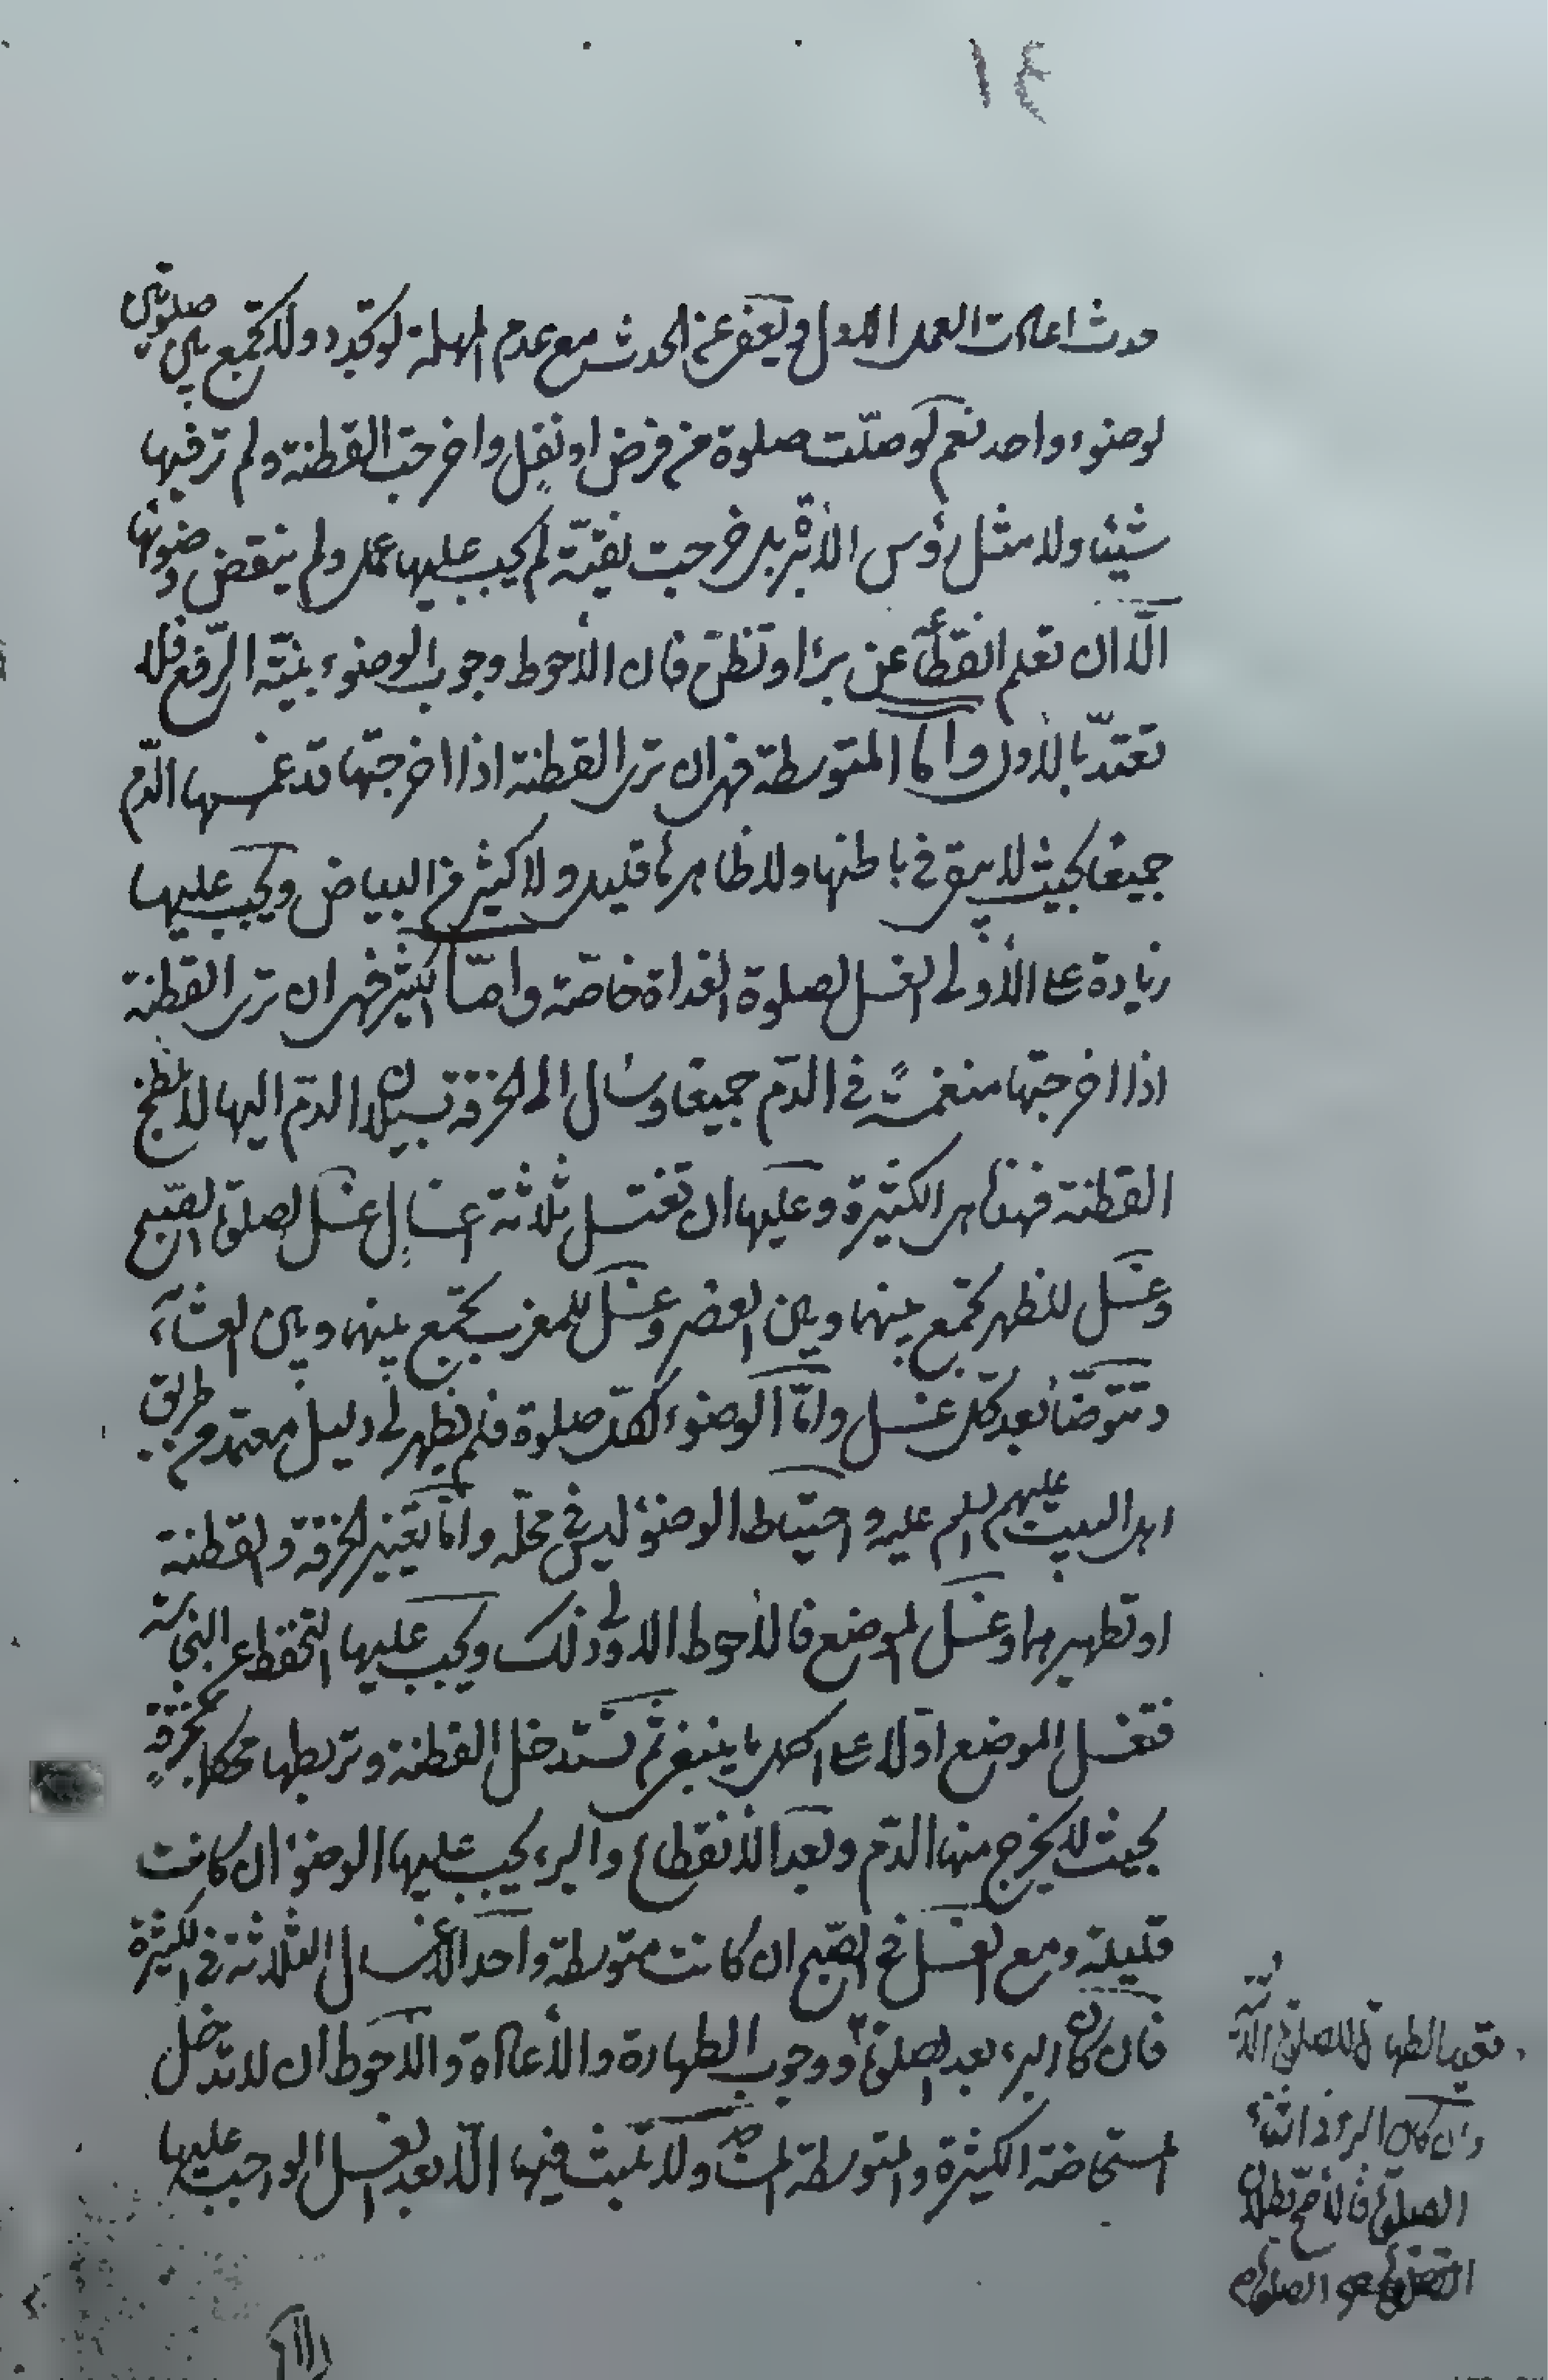 ١٤
حدث اعادت العمل الاول ويعفى عن الحدث مع عدم المهلة لو تجدد ولا تجمع بين صلوتين
لوضوء واحد نعم لو صلّت صلوة من فرض او نفل واخرجت القطنة ولم تر فيها
شيئا ولا مثل رؤس الابرة بل خرجت نقيّة لم يجب عليها عمل ولم ينقض وضوئها
الّا ان تعلم انقطاعه عن برء او تظن فان الأحوط وجوب الوضوء بنيّة الرّفع فلا
تعتدّ بالأول وامّا المتوسطة فهى ان ترى القطنة اذا اخرجتها قد غمسها الدّم
جميعا بحيث لا يبقى فى باطنها ولا ظاهرها قليل ولا كثير من البياض ويجب عليها
زيادة على الأولى الغسل لصلوة الغداة خاصّة وامّا الكثيرة فهى ان ترى القطنة
اذا اخرجتها منغمسة فى الدّم جميعا وسال الى الخرقة بسيلان الدّم اليها لا بلطخ
القطنة فهذه هى الكثيرة وعليها ان تغتسل ثلاثة اغسال غسل لصلوة الصّبح
وغسل للظهر تجمع بينها وبين العصر وغسل للمغرب تجمع بينها وبين العشاء
وتتوضّأ بعد كلّ غسل وامّا الوضوء لكلّ صلوة فلم يظهر لى دليل معتمد من طريق
اهل البيت عليهم السلام عليه واحتياط الوضوء ليس فى محلّه وامّا تغيير الخرقة والقطنة
او تطهيرهما وغسل الموضع فالأحوط الاولى ذلك ويجب عليها التحفظ عن النجاسة
فتغسل الموضع اوّلا على اكمل ما ينبغى ثم تستدخل القطنة وتربطها محكما بخرقةٍ
بحيث لا يخرج منها الدّم وبعد الأنقطاع والبرء يجب عليها الوضوء ان كانت
قليلة ومع الغسل فى الصّبح ان كانت متوسطة واحد الأغسال الثلاثة فى الكثيرة
فان كان البرء بعد الصلوة ووجوب الطهارة والأعادة والأحوط ان لا تدخل
المستحاضة الكثيرة والمتوسطة المسجد ولا تلبث فيها الّا بعد الغسل الواجب عليها
فتعيد الطهارة للصلوة الآتية
وان كان البرء فى اثناء
الصلوة فالأصح بطلان